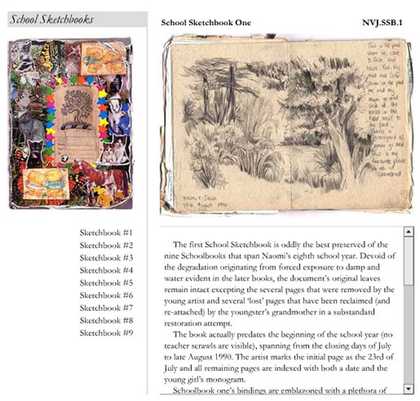 School Sketchbooks
School Sketchbook One
NVJ.SSB.1
Sketchbook #1
Sketchbook #2
Sketchbook #3
Sketchbook #4
Sketchbook #5
Sketchbook #6
Sketchbook #7
Sketchbook #8
Sketchbook #9
The first School Sketchbook is oddly the best preserved of the
nine Schoolbooks that span Naomi's eighth school year. Devoid of
the degradation originating from forced exposure to damp and
water evident in the later books, the document's original leaves
remain intact excepting the several pages that were removed by the
young artist and several 'lost' pages that have been reclaimed (and
re-attached) by the youngster's grandmother in a substandard
restoration attempt.
The book actually predates the beginning of the school year (no
teacher scrawls are visible), spanning from the closing days of July
to late August 1990. The artist marks the initial page as the 23rd of
July and all remaining pages are indexed with both a date and the
young girl's monogram.
Schoolbook one's bindings are emblazoned with a plethora of